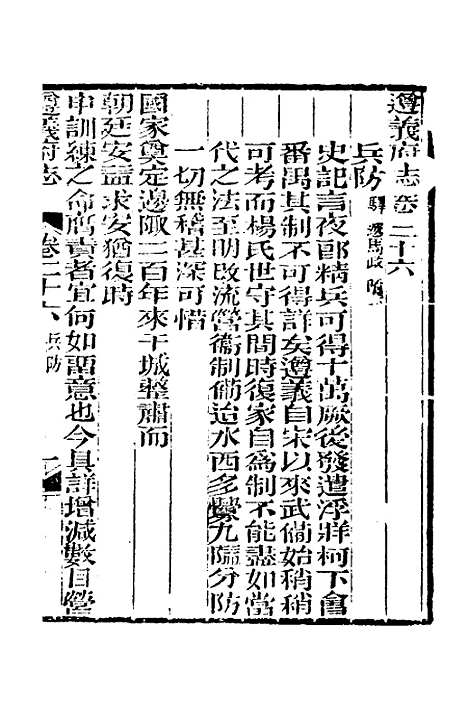 遵義府志卷二十六
兵防 驛遞馬政附
史記言夜郎精兵可得十萬厥後發遣浮牂柯下會
番禺其制不可得詳矣遵義自宋以來武備始稍稍
可考而楊氏世守其間時復家自為制不能盡如當
代之法至明改流營衞制備迨水西多釁九隘分防
一切無稽甚深可惜
國家奠定邊陬二百年來干城整肅而
朝廷安益求安猶復時
申訓練之命膺責者宜何如留意也今具詳增減數目營
遵義府志
卷二十六 兵防
一